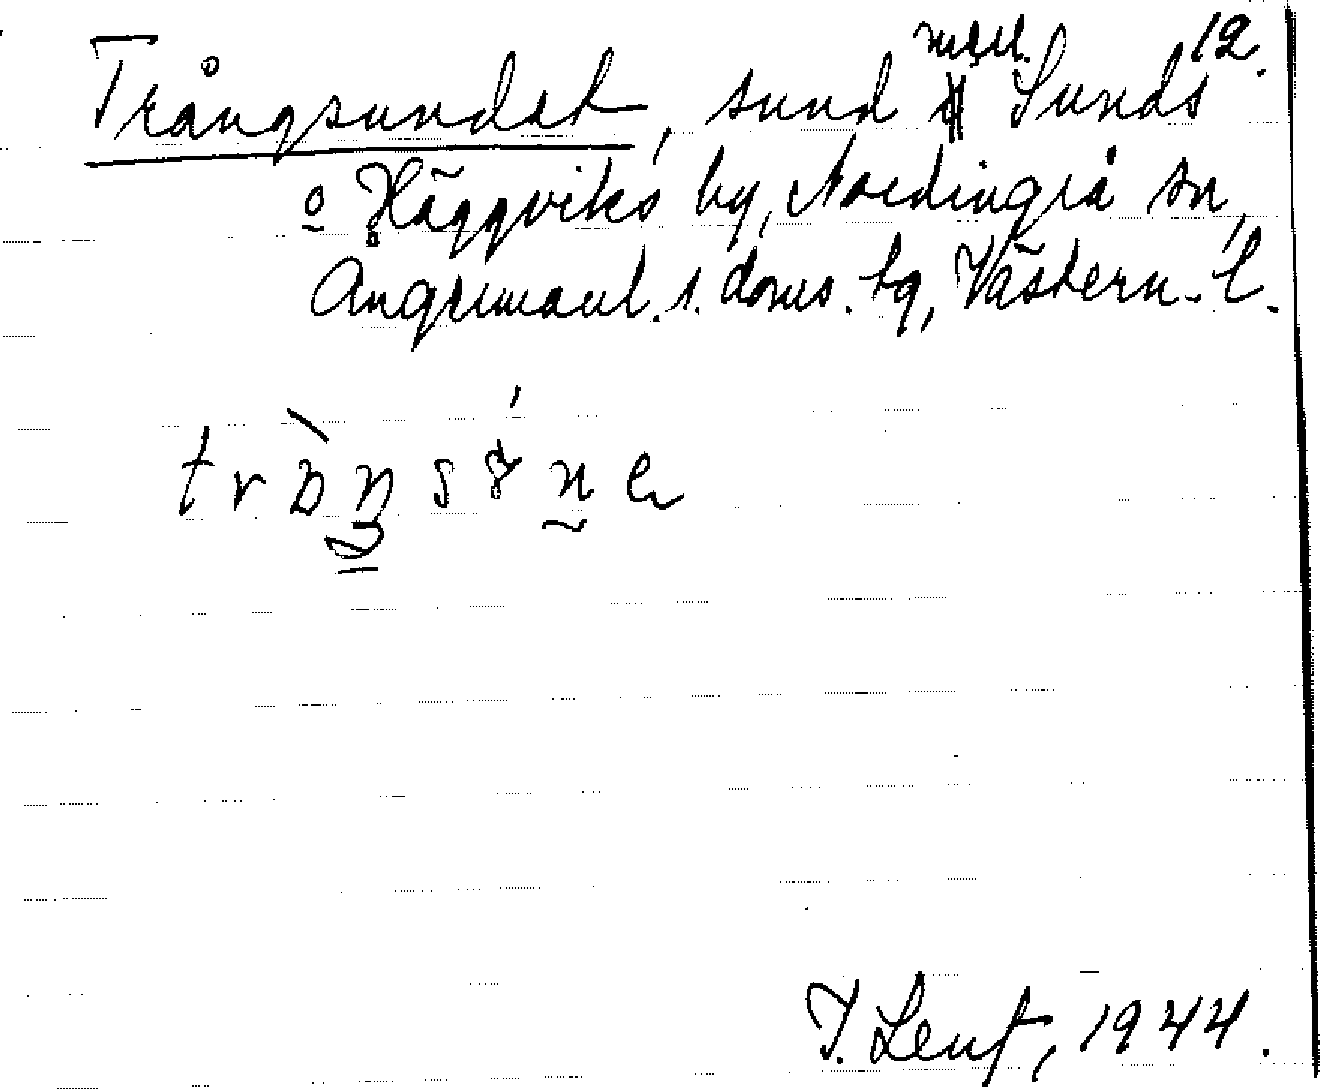 12.
Trångsundet, sund mell. Sunds
o Häggviks by, Nordingrå sn,
Ångermanl. s. doms. tg, Västern. l.
J. Lenf, 1944.